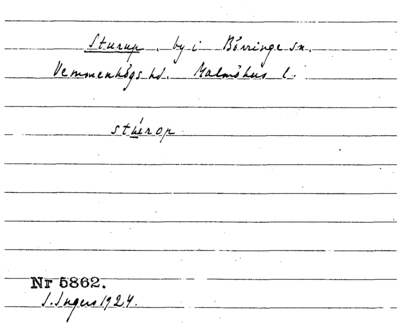 Sturup. by i Börringe sn.
Vemmenhögs hd. Malmöhus l.
stúrop
Nr 5862.
I. Ingers 1924.